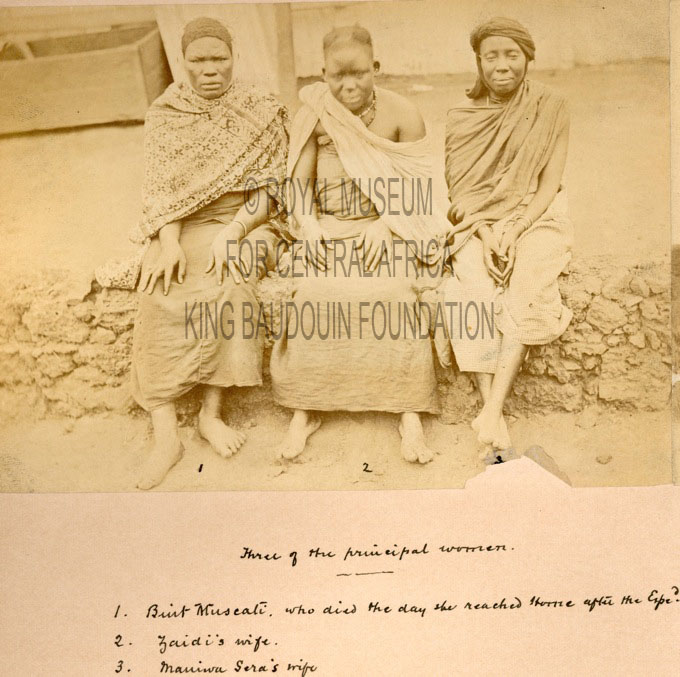 © ROYAL MUSEUM
FOR CENTRAL AFRICA
KING BAUDOUIN FOUNDATION
1 2 3
Three of the principal women.
1. Bint Muscati, who died the day she reached Home after the Exped.
2. Zaidi's wife.
3. Maniwa Sera's wife